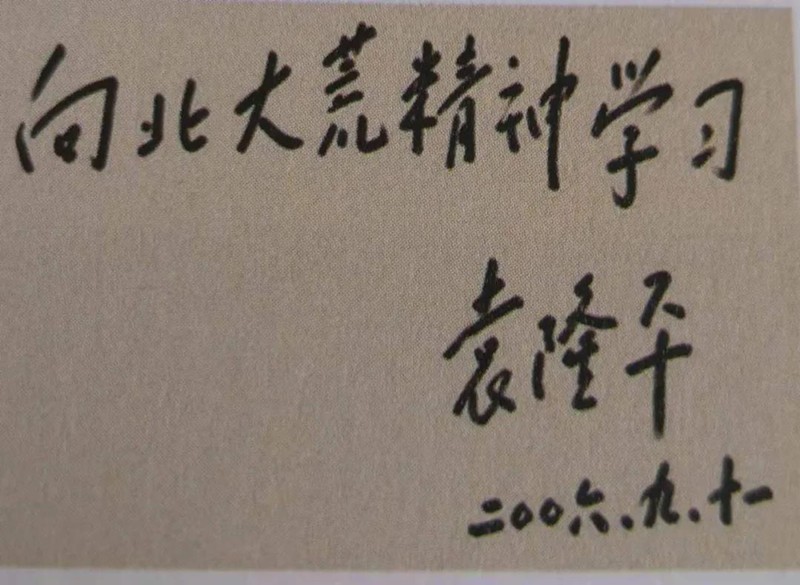 向北大荒精神学习
袁隆平
二〇〇六、九、十一